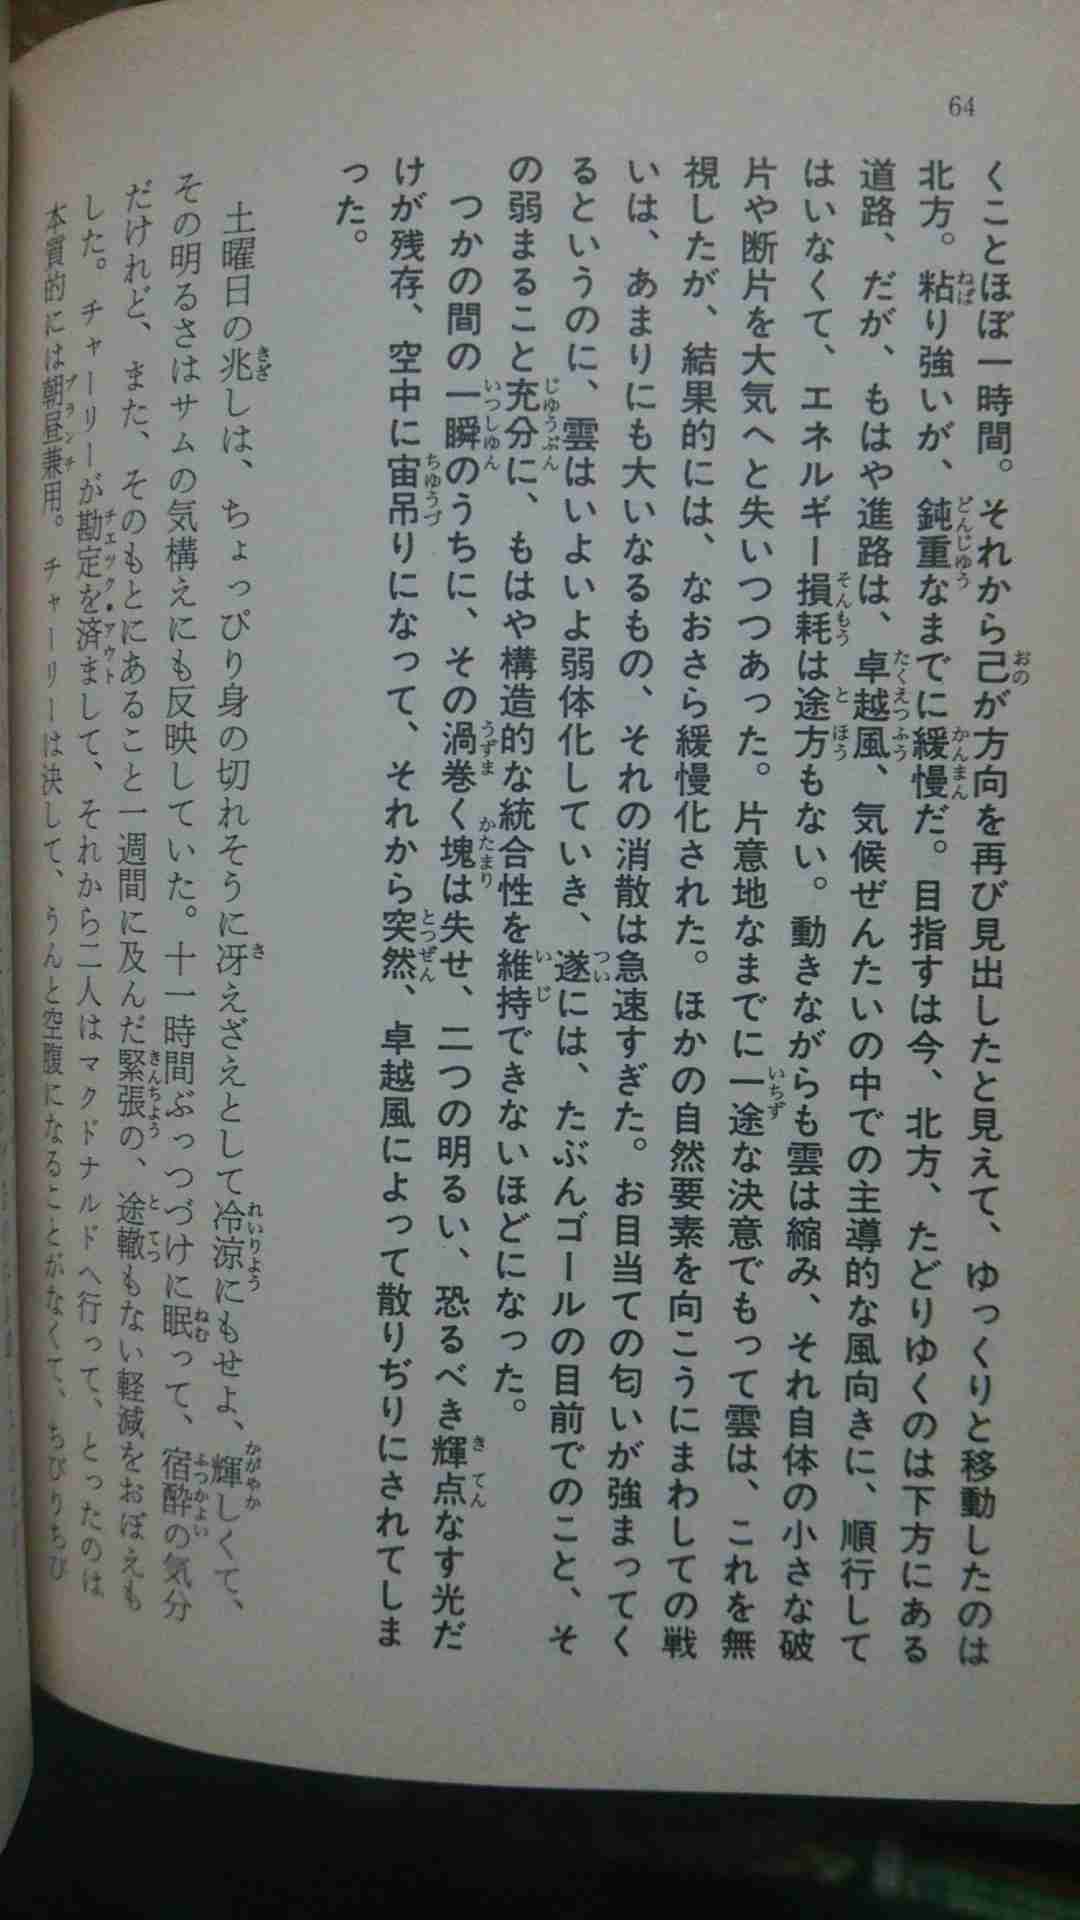 64
くことほぼ一時間。それから己が方向を再び見出したと見えて、ゆっくりと移動したのは
北方。粘り強いが、鈍重なまでに緩慢だ。目指すは今、北方、たどりゆくのは下方にある
道路、だが、もはや進路は、卓越風、気候ぜんたいの中での主導的な風向きに、順行して
はいなくて、エネルギー損耗は途方もない。動きながらも雲は縮み、それ自体の小さな破
片や断片を大気へと失いつつあった。片意地なまでに一途な決意でもって雲は、これを無
視したが、結果的には、なおさら緩慢化された。ほかの自然要素を向こうにまわしての戦
いは、あまりにも大いなるもの、それの消散は急速すぎた。お目当ての匂いが強まってく
るというのに、雲はいよいよ弱体化していき、遂には、たぶんゴールの目前でのこと、そ
の弱まること充分に、もはや構造的な統合性を維持できないほどになった。
つかの間の一瞬のうちに、その渦巻く塊は失せ、二つの明るい、恐るべき輝点なす光だ
けが残存、空中に宙吊りになって、それから突然、卓越風によって散りぢりにされてしま
った。
土曜日の兆しは、ちょっぴり身の切れそうに冴えざえとして冷涼にもせよ、輝しくて、
その明るさはサムの気構えにも反映していた。十一時間ぶっつづけに眠って、宿酔の気分
だけれど、また、そのもとにあること一週間に及んだ緊張の、途轍もない軽減をおぼえも
した。チャーリーが勘定を済まして、それから二人はマクドナルドへ行って、とったのは
本質的には朝昼兼用。チャーリーは決して、うんと空腹になることがなくて、ちびりちび